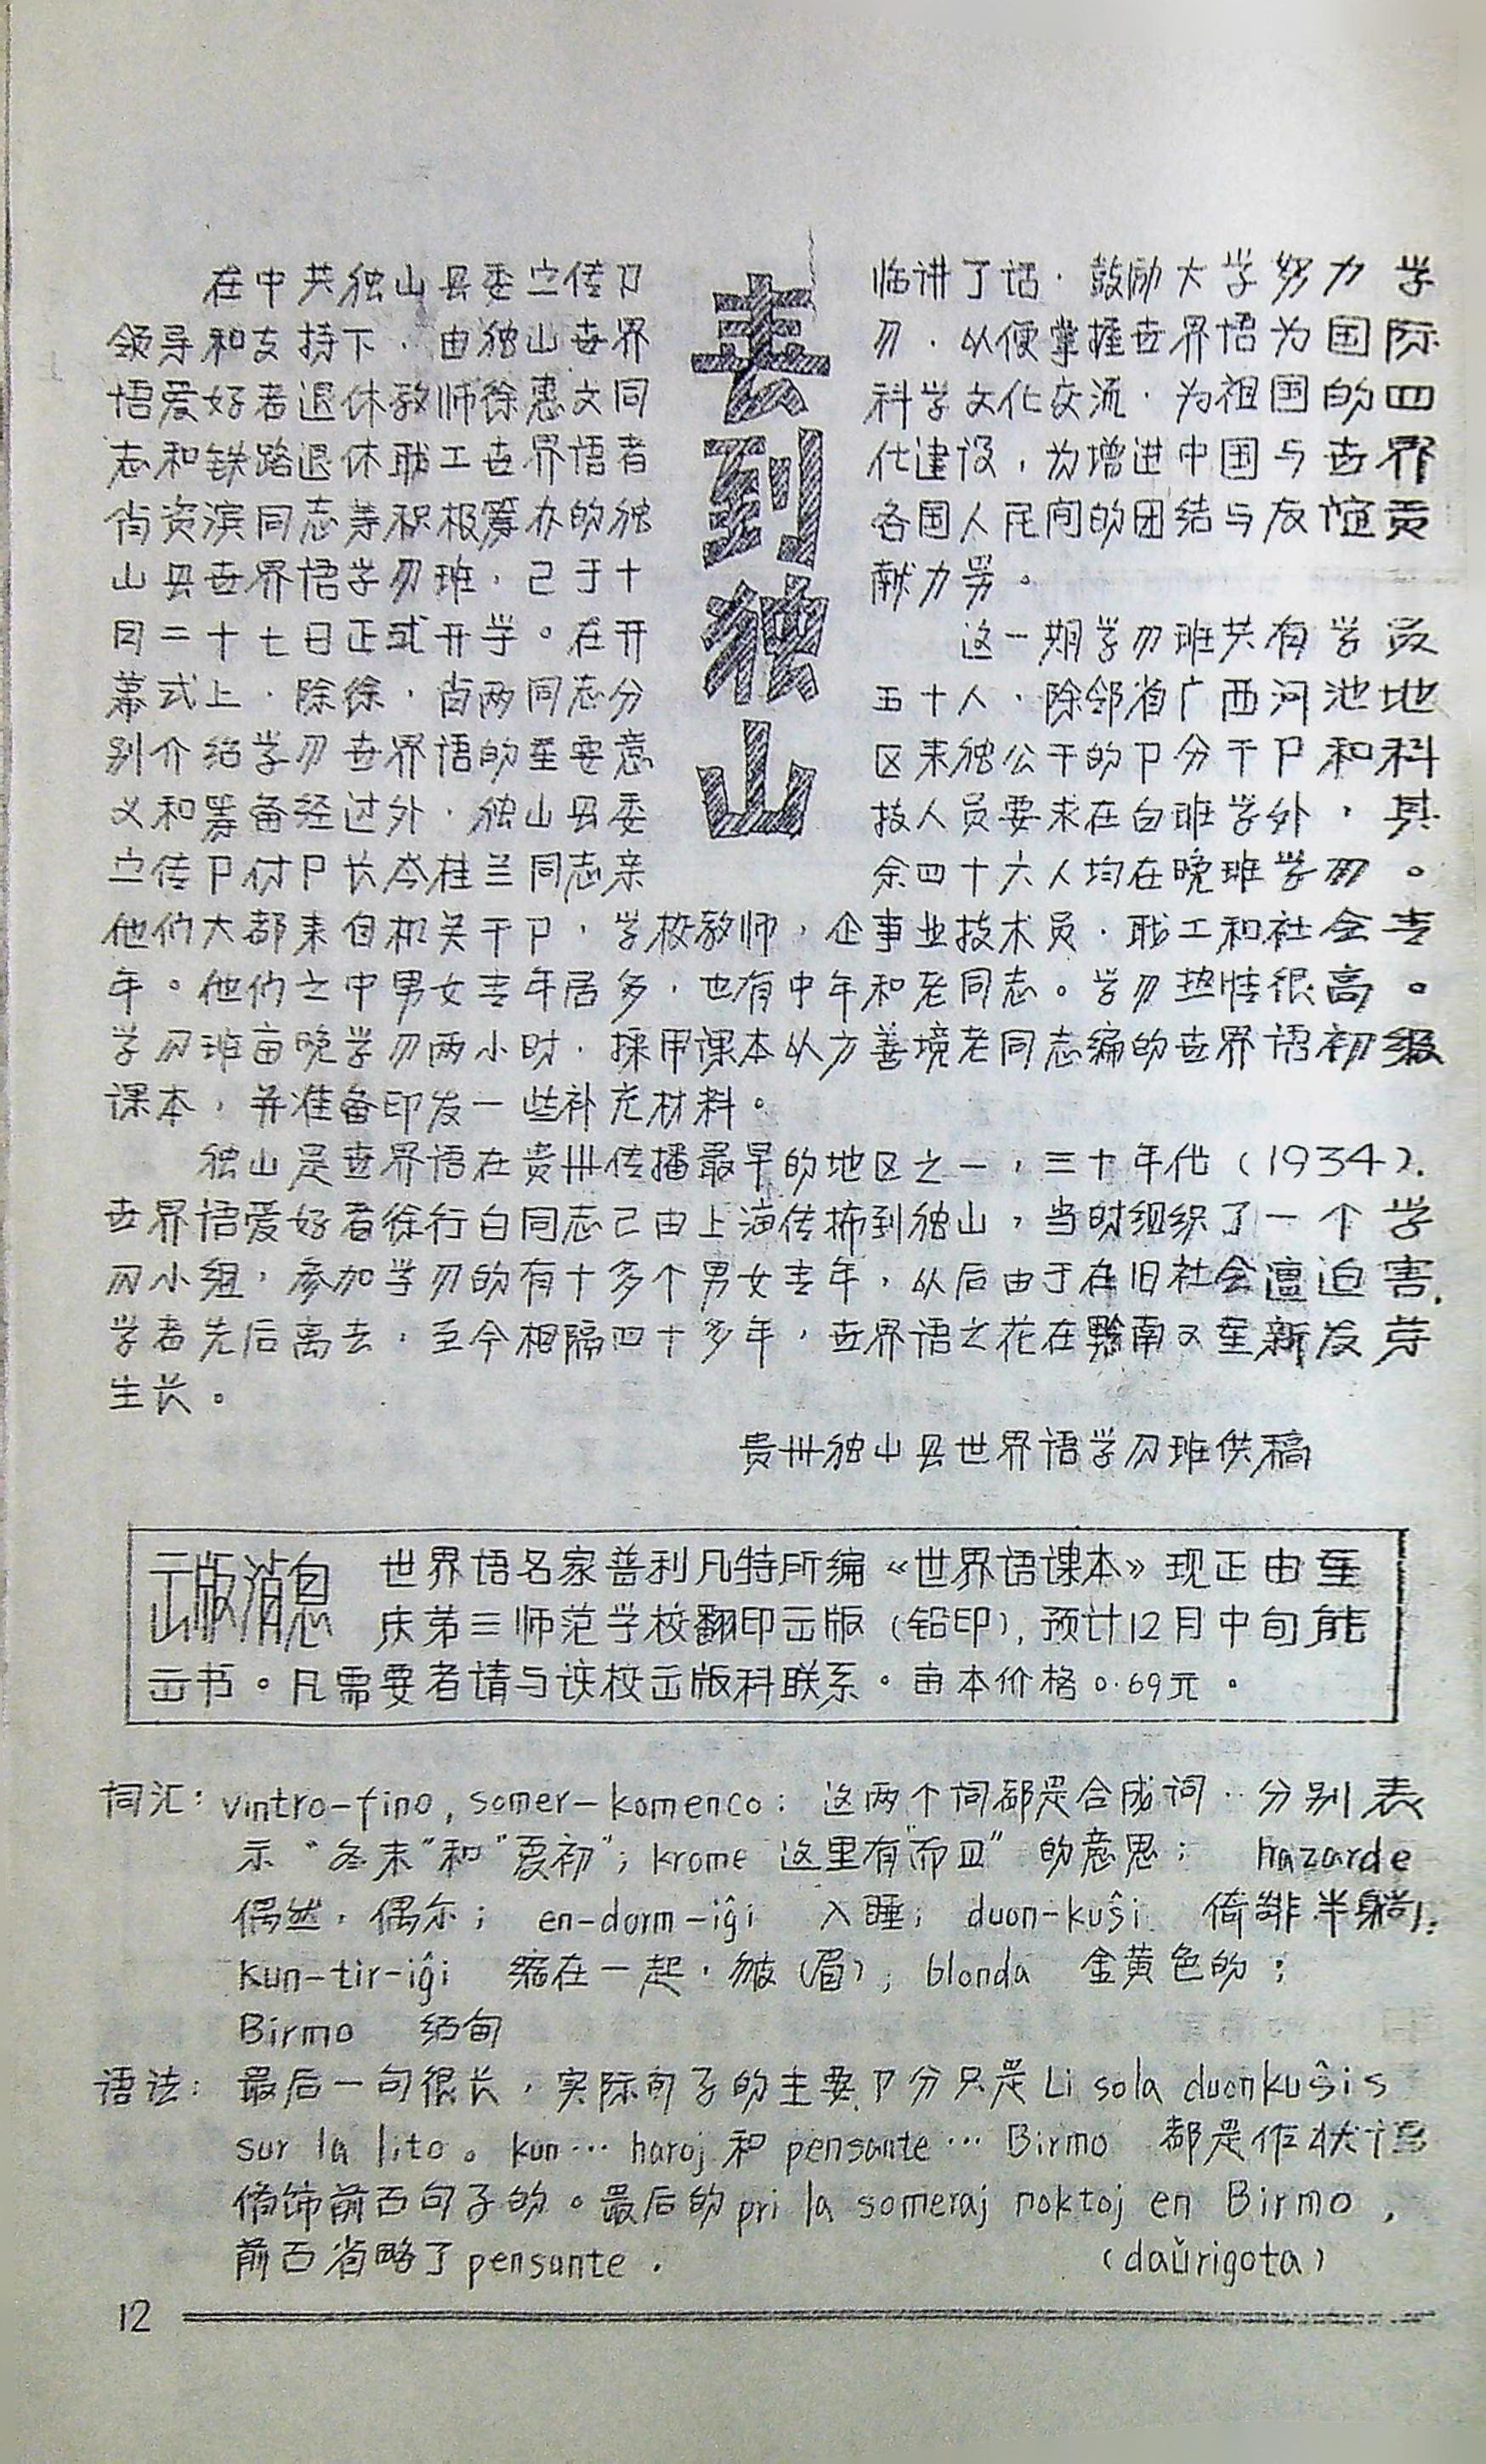 去到独山
在中共独山县委宣传卩
领导和支持下，由独山世界
语爱好者退休教师徐惠文同
志和铁路退休职工世界语者
肖资滨同志等积极筹办的独
山县世界语学习班，已于十
月二十七日正式开学。在开
幕式上，除徐，肖两同志分
别介绍学习世界语的重要意
义和筹备经过外，独山县委
宣传卩付卩长岑桂兰同志亲
临讲了话，鼓励大学努力学
习，以便掌握世界语为国际
科学文化交流，为祖国的四
化建设，为增进中国与世界
各国人民间的团结与友谊贡
献力另。
这一期学习班共有学员
五十人，除邻省广西河池地
区来独公干的卩分干卩和科
技人员要求在白班学外，其
余四十六人均在晚班学习。
他们大都来自机关干卩，学校教师，企事业技术员，职工和社会青
年。他们之中男女青年居多，也有中年和老同志。学习热情很高。
学习班每晚学习两小时，採用课本以方善境老同志编的世界语初级
课本，并准备印发一些补充材料。
独山是世界语在贵州传播最早的地区之一，三十年代（1934），
世界语爱好者徐行白同志已由上海传布到独山，当时组织了一个学
习小组，参加学习的有十多个男女青年，以后由于在旧社会遭迫害，
学者先后离去，至今相隔四十多年，世界语之花在黔南又重新发芽
生长。
贵州独山县世界语学习班供稿
出版消息
世界语名家普利凡特所编《世界语课本》现正由重
庆第三师范学校翻印出版（铅印），预计12月中旬能
出书。凡需要者请与该校出版科联系。每本价格0.69元。
词汇：vintro-fino, somer-komenco：这两个词都是合成词，分别表
示“冬末”和“夏初”；krome 这里有“而且”的意思； hazarde
偶然，偶尔； en-dorm-iĝi 入睡； duon-kuŝi 倚靠半躺；
kun-tir-iĝi 缩在一起，皱（眉）；blonda 金黄色的；
Birmo 缅甸
语法：最后一句很长，实际句子的主要卩分只是Li sola duonkuŝis
sur la lito。kun… haroj 和 pensante… Birmo 都是作状语
修饰前面句子的。最后的pri la someraj noktoj en Birmo，
前面省略了pensante． （daŭrigota）
12